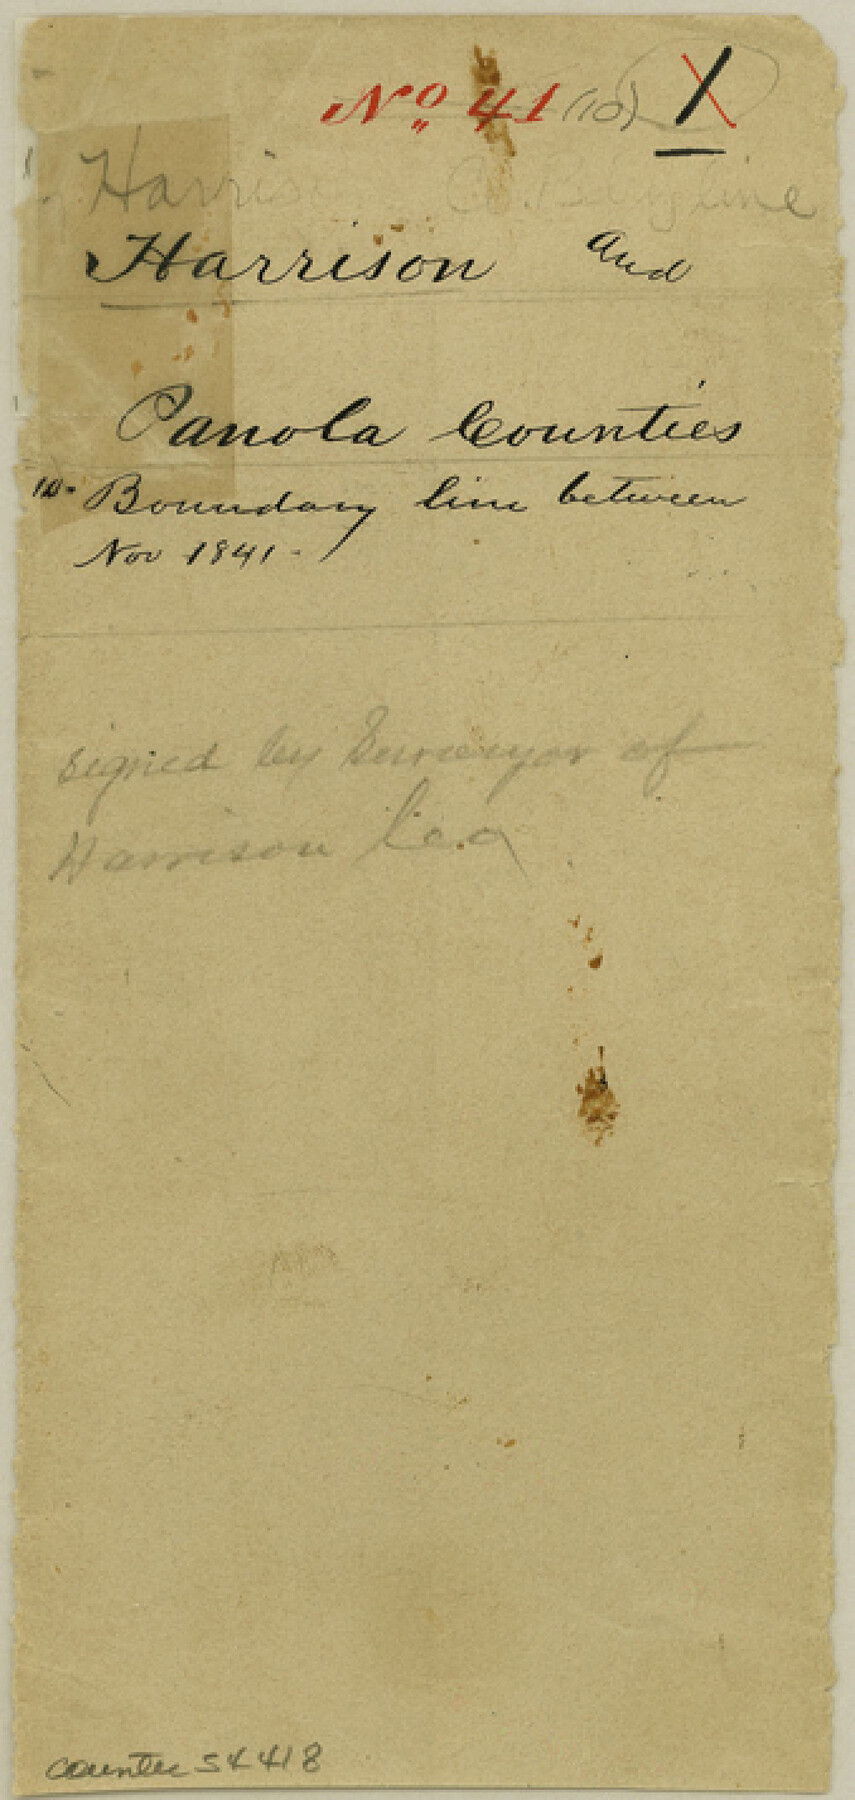 No 41 (10) X
Harrison Co. Bdy line
Harrison and
Panola Counties
10- Boundary line between
Nov 1841-
signed by Surveyor of
Harrison Co.
counter 54418